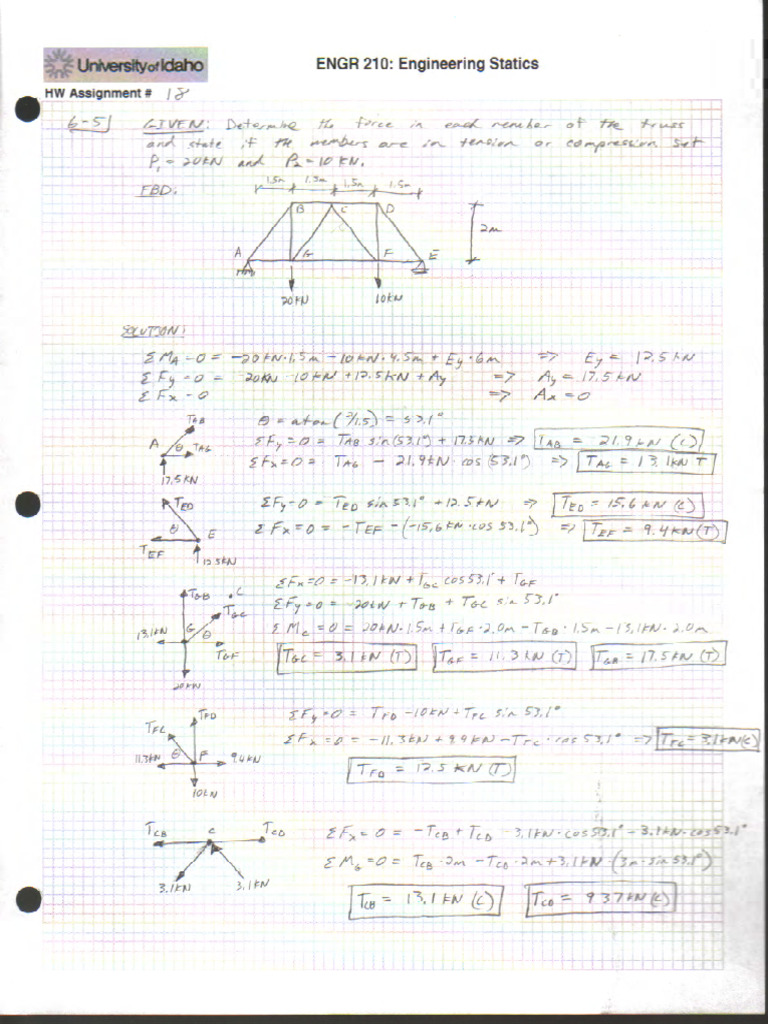 University of Idaho
ENGR 210: Engineering Statics
HW Assignment # 18
6-51 GIVEN: Determine the force in each memeber of the truss
and state if the members are in tension or compression set
P₁ = 20kN and P₂ = 10 KN.
FBD:
1.5m 1.5m 1.5m 1.5m
B C D
A G F E
2m
20kN 10kN
SOLUTION:
ΣM_A = 0 = -20kN·1.5m - 10kN·4.5m + Ey·6m => Ey = 12.5kN
ΣFy = 0 = -20KN - 10kN + 12.5kN + Ay => Ay = 17.5kN
ΣFx = 0 => Ax = 0
θ = atan(2/1.5) = 53.1°
T_AB
A θ T_AG
17.5kN
ΣFy = 0 = T_AB sin(53.1°) + 17.5kN => T_AB = 21.9kN (C)
ΣFx = 0 = T_AG - 21.9kN·cos(53.1°) => T_AG = 13.1kN T
T_ED
θ E
T_EF
12.5kN
ΣFy = 0 = T_ED sin 53.1° + 12.5kN => T_ED = 15.6kN (C)
ΣFx = 0 = -T_EF - (-15.6kN·cos 53.1°) => T_EF = 9.4KN (T)
T_GB C
T_GC
13.1kN G θ
T_GF
20kN
ΣFx = 0 = -13.1kN + T_GC cos53.1° + T_GF
ΣFy = 0 = -20kN + T_GB + T_GC sin 53.1°
ΣM_C = 0 = 20kN·1.5m + T_GF·2.0m - T_GB·1.5m - 13.1kN·2.0m
T_GC = 3.1kN (T) T_GF = 11.3kN (T) T_GB = 17.5kN (T)
T_FD
T_FC
11.3kN θ F 9.4KN
10kN
ΣFy = 0 = T_FD - 10kN + T_FC sin 53.1°
ΣFx = 0 = -11.3kN + 9.4kN - T_FC·cos 53.1° => T_FC = 3.1kN(C)
T_FD = 12.5 KN (T)
T_CB C T_CD
3.1kN 3.1kN
ΣFx = 0 = -T_CB + T_CD - 3.1kN·cos53.1° - 3.1kN·cos53.1°
ΣM_G = 0 = T_CB·2m - T_CD·2m + 3.1kN·(3m·sin 53.1°)
T_CB = 13.1 KN (C) T_CD = 9.37kN (C)